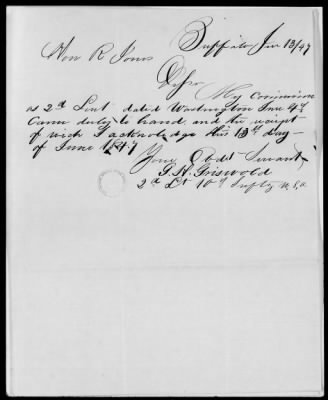 Buffalo June 13/47
Hon R Jones
D Sir
My Commission
as 2d Lieut dated Washington June 9th
Came duly to hand and the receipt
of wich I acknoledge this 13th day
of June 1847
Your Obdt Servant
G. H. Griswold
2d Lt 10th Infty U.S.A